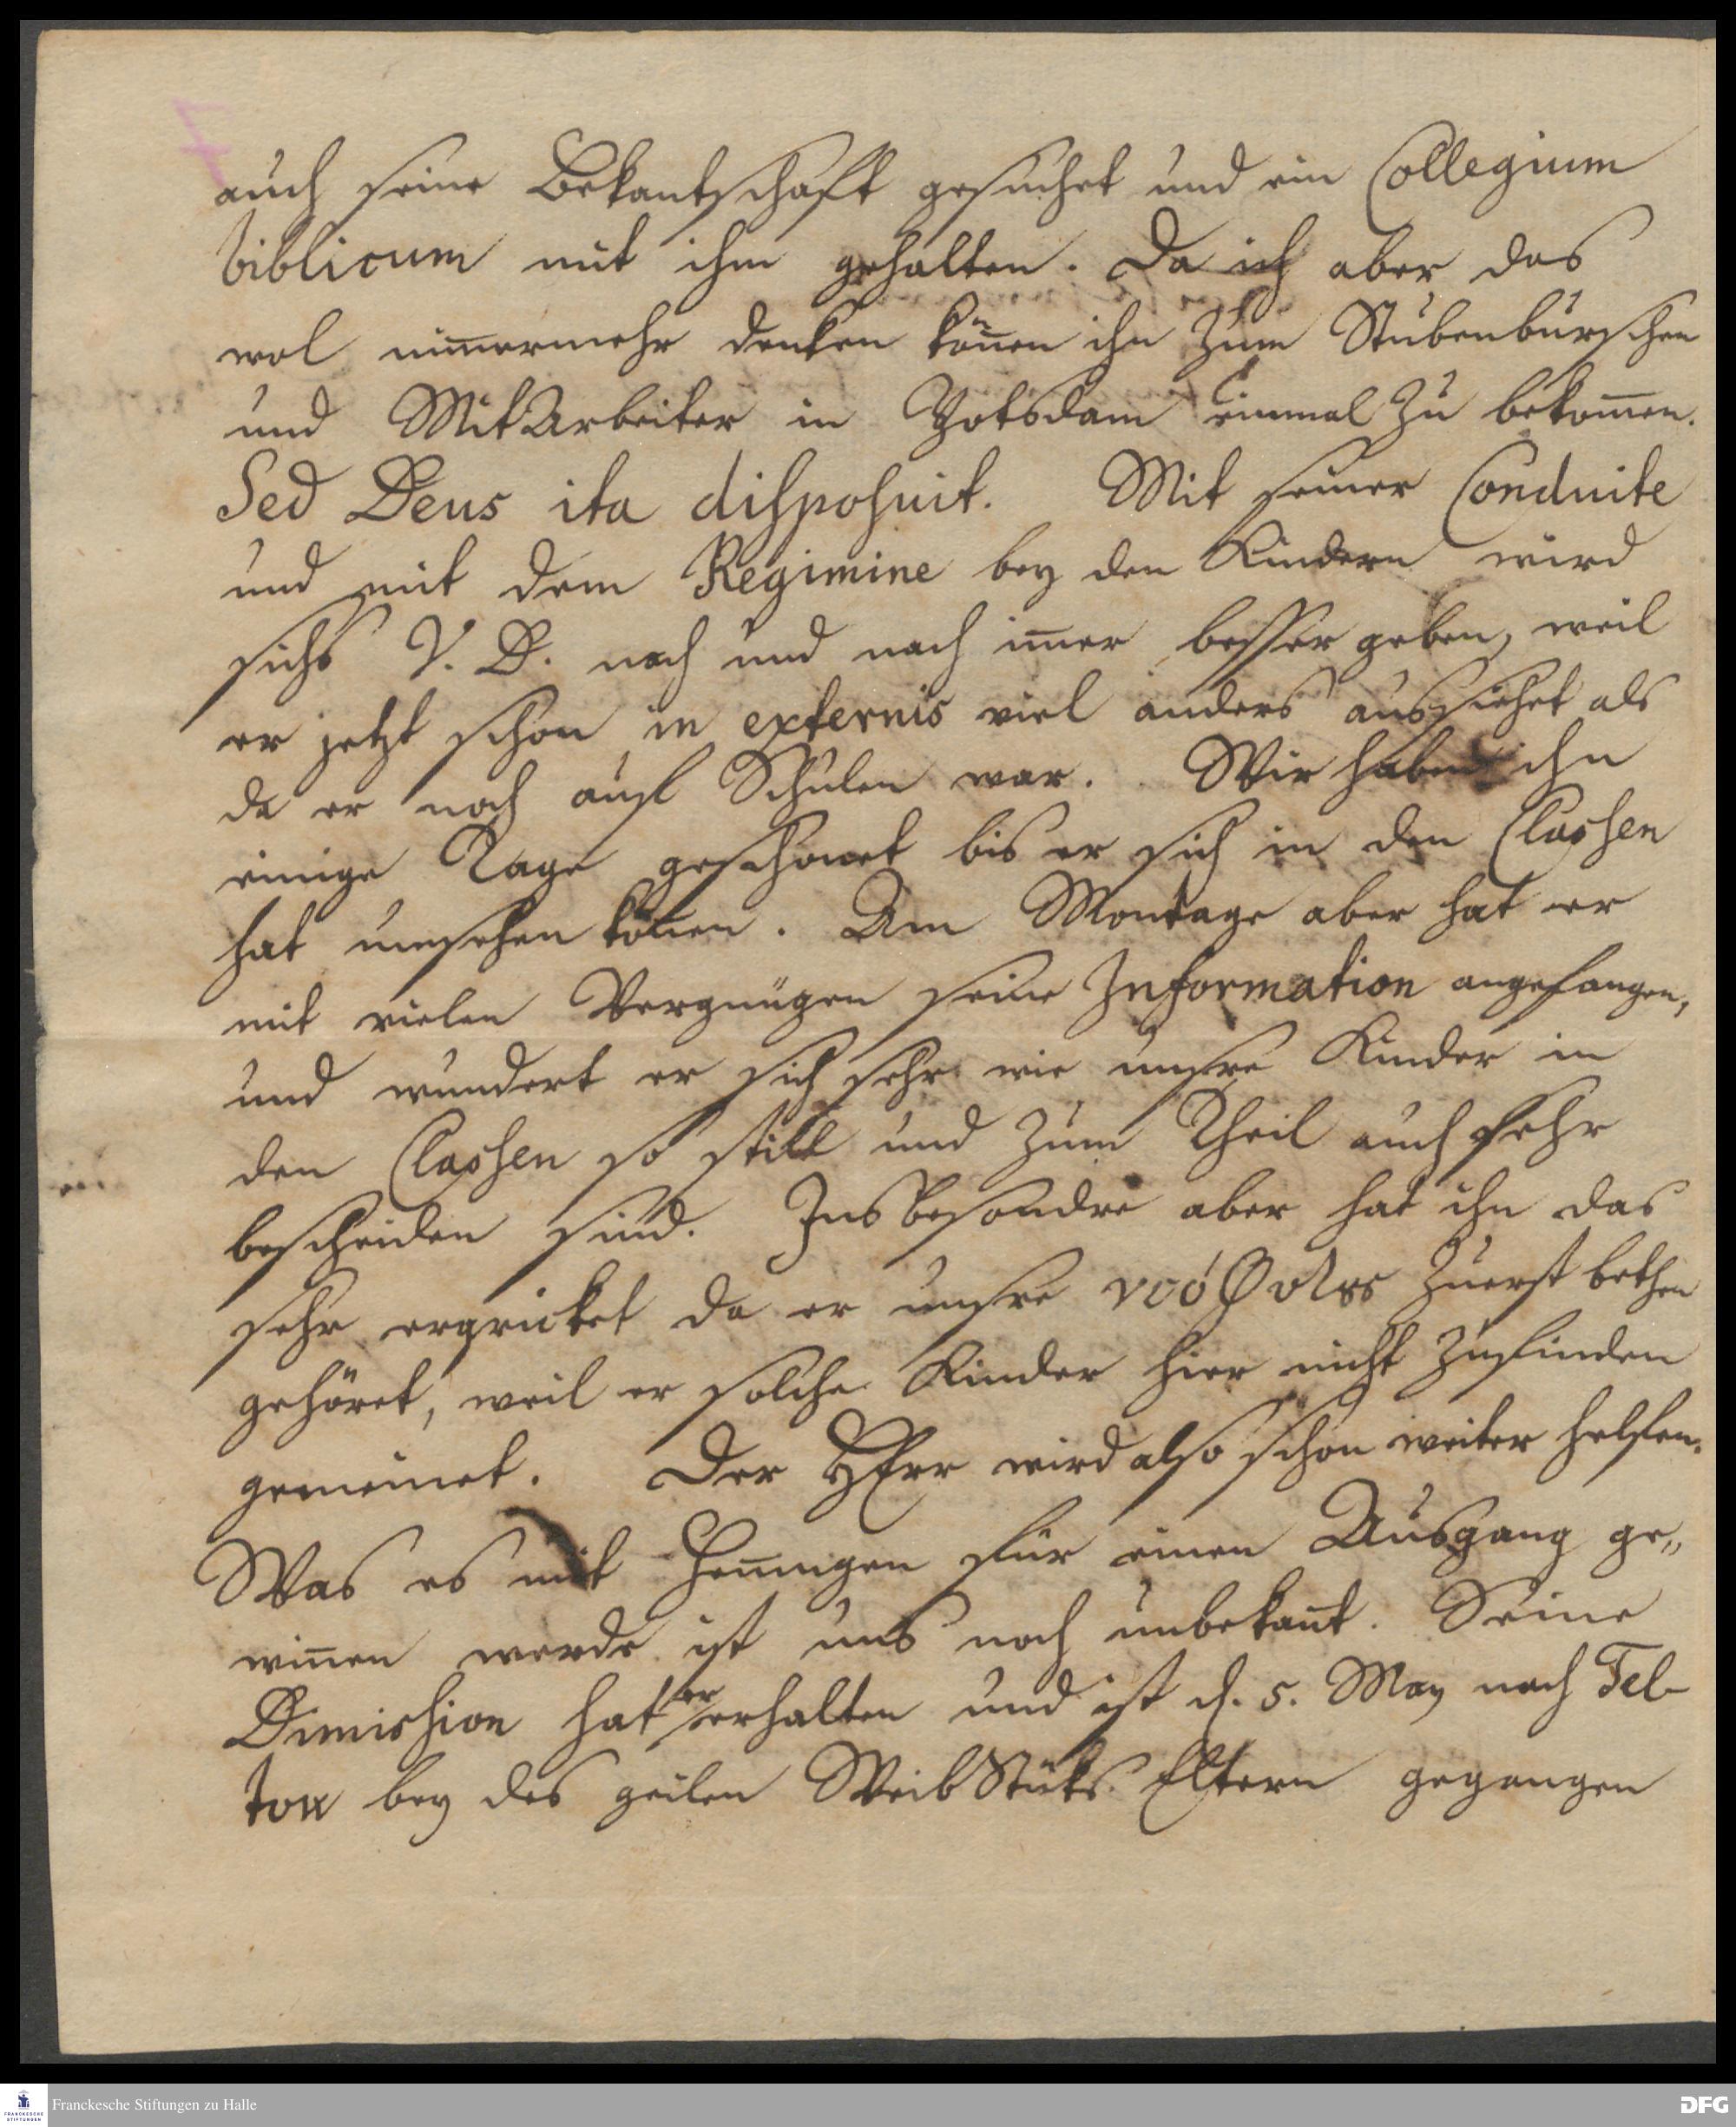 auch seine Bekantschaft gesuchet und ein Collegium
biblicum mit ihm gehalten. Da ich aber das
wol nim̄ermehr denken kön̄en ihn zum Stubenburschen
und MitArbeiter in Potsdam einmal zu bekom̄en.
Sed Deus ita disposuit. Mit seiner Conduite
und mit dem Regimine bey den Kindern wird
sichs V. D. nach und nach im̄er besser geben, weil
er jetzt schon in externis viel anders aussiehet als
da er noch auf Schulen war. Wir haben ihn
einige Tage geschonet bis er sich in den Classen
hat umsehen kön̄en. Am Montage aber hat er
mit vielen Vergnügen seine Information angefangen,
und wundert er sich sehr wie unsre Kinder in
den Classen so still und zum Theil auch sehr
bescheiden sind. Insbesondre aber hat ihn das
sehr erqvicket da er unsre zuerst bethen
gehöret, weil er solche Kinder hier nicht zufinden
gemeinet. Der HErr wird also schon weiter helfen.
Was es mit Hen̄ingen für einen Ausgang ge„
win̄en werde ist uns noch unbekan̄t. Seine
Dimission hat er erhalten und ist d. 5. May nach Tel-
tow bey des geilen WeibStüks Eltern gegangen
Franckesche Stiftungen zu Halle
DFG